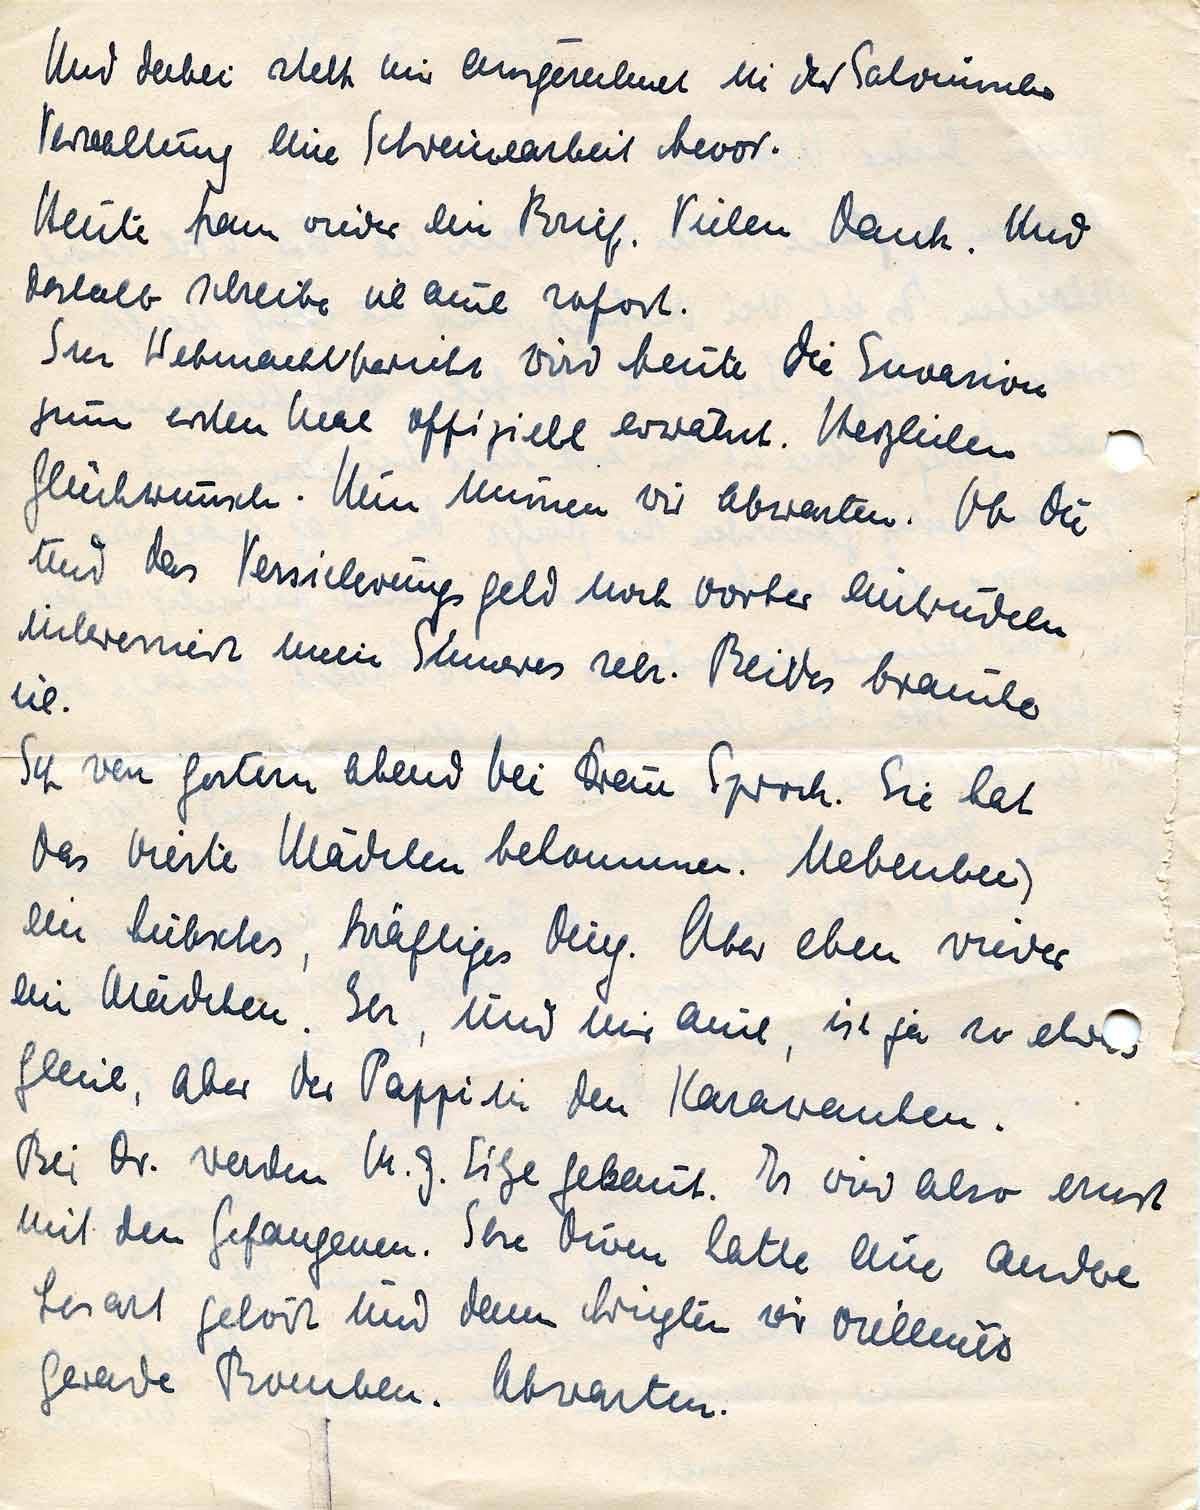 Und dabei steht mir ausgerechnet in der
Verwaltung eine Schweinearbeit bevor.
Heute kam wieder ein Brief. Vielen Dank. Und
deshalb schreibe ich auch sofort.
Im Wehmachtbericht wird heute die Invasion
zum ersten Mal offiziell erwähnt. Herzlichen
Glückwunsch. Nun müssen wir abwarten. Ob Du
und das Versicherungsgeld noch vorher eintrudeln
interessiert mein sehr. Beides brauche
ich.
Ich war gestern abend bei Frau Sproch. Sie hat
das vierte Mädchen bekommen. Nebenbei,
ein hübsches, kräftiges Ding. Aber eben wieder
ein Mädchen. Ihr, und mir auch, ist ja so etwas
gleich, aber der Pappi in den Karawanken.
Bei Dr. werden M.G. gebaut. Es wird also ernst
mit den Gefangenen. Ihre hatte eine andere
Lesart gehört und dann kriegten wir
gerade Bomben. Abwarten.